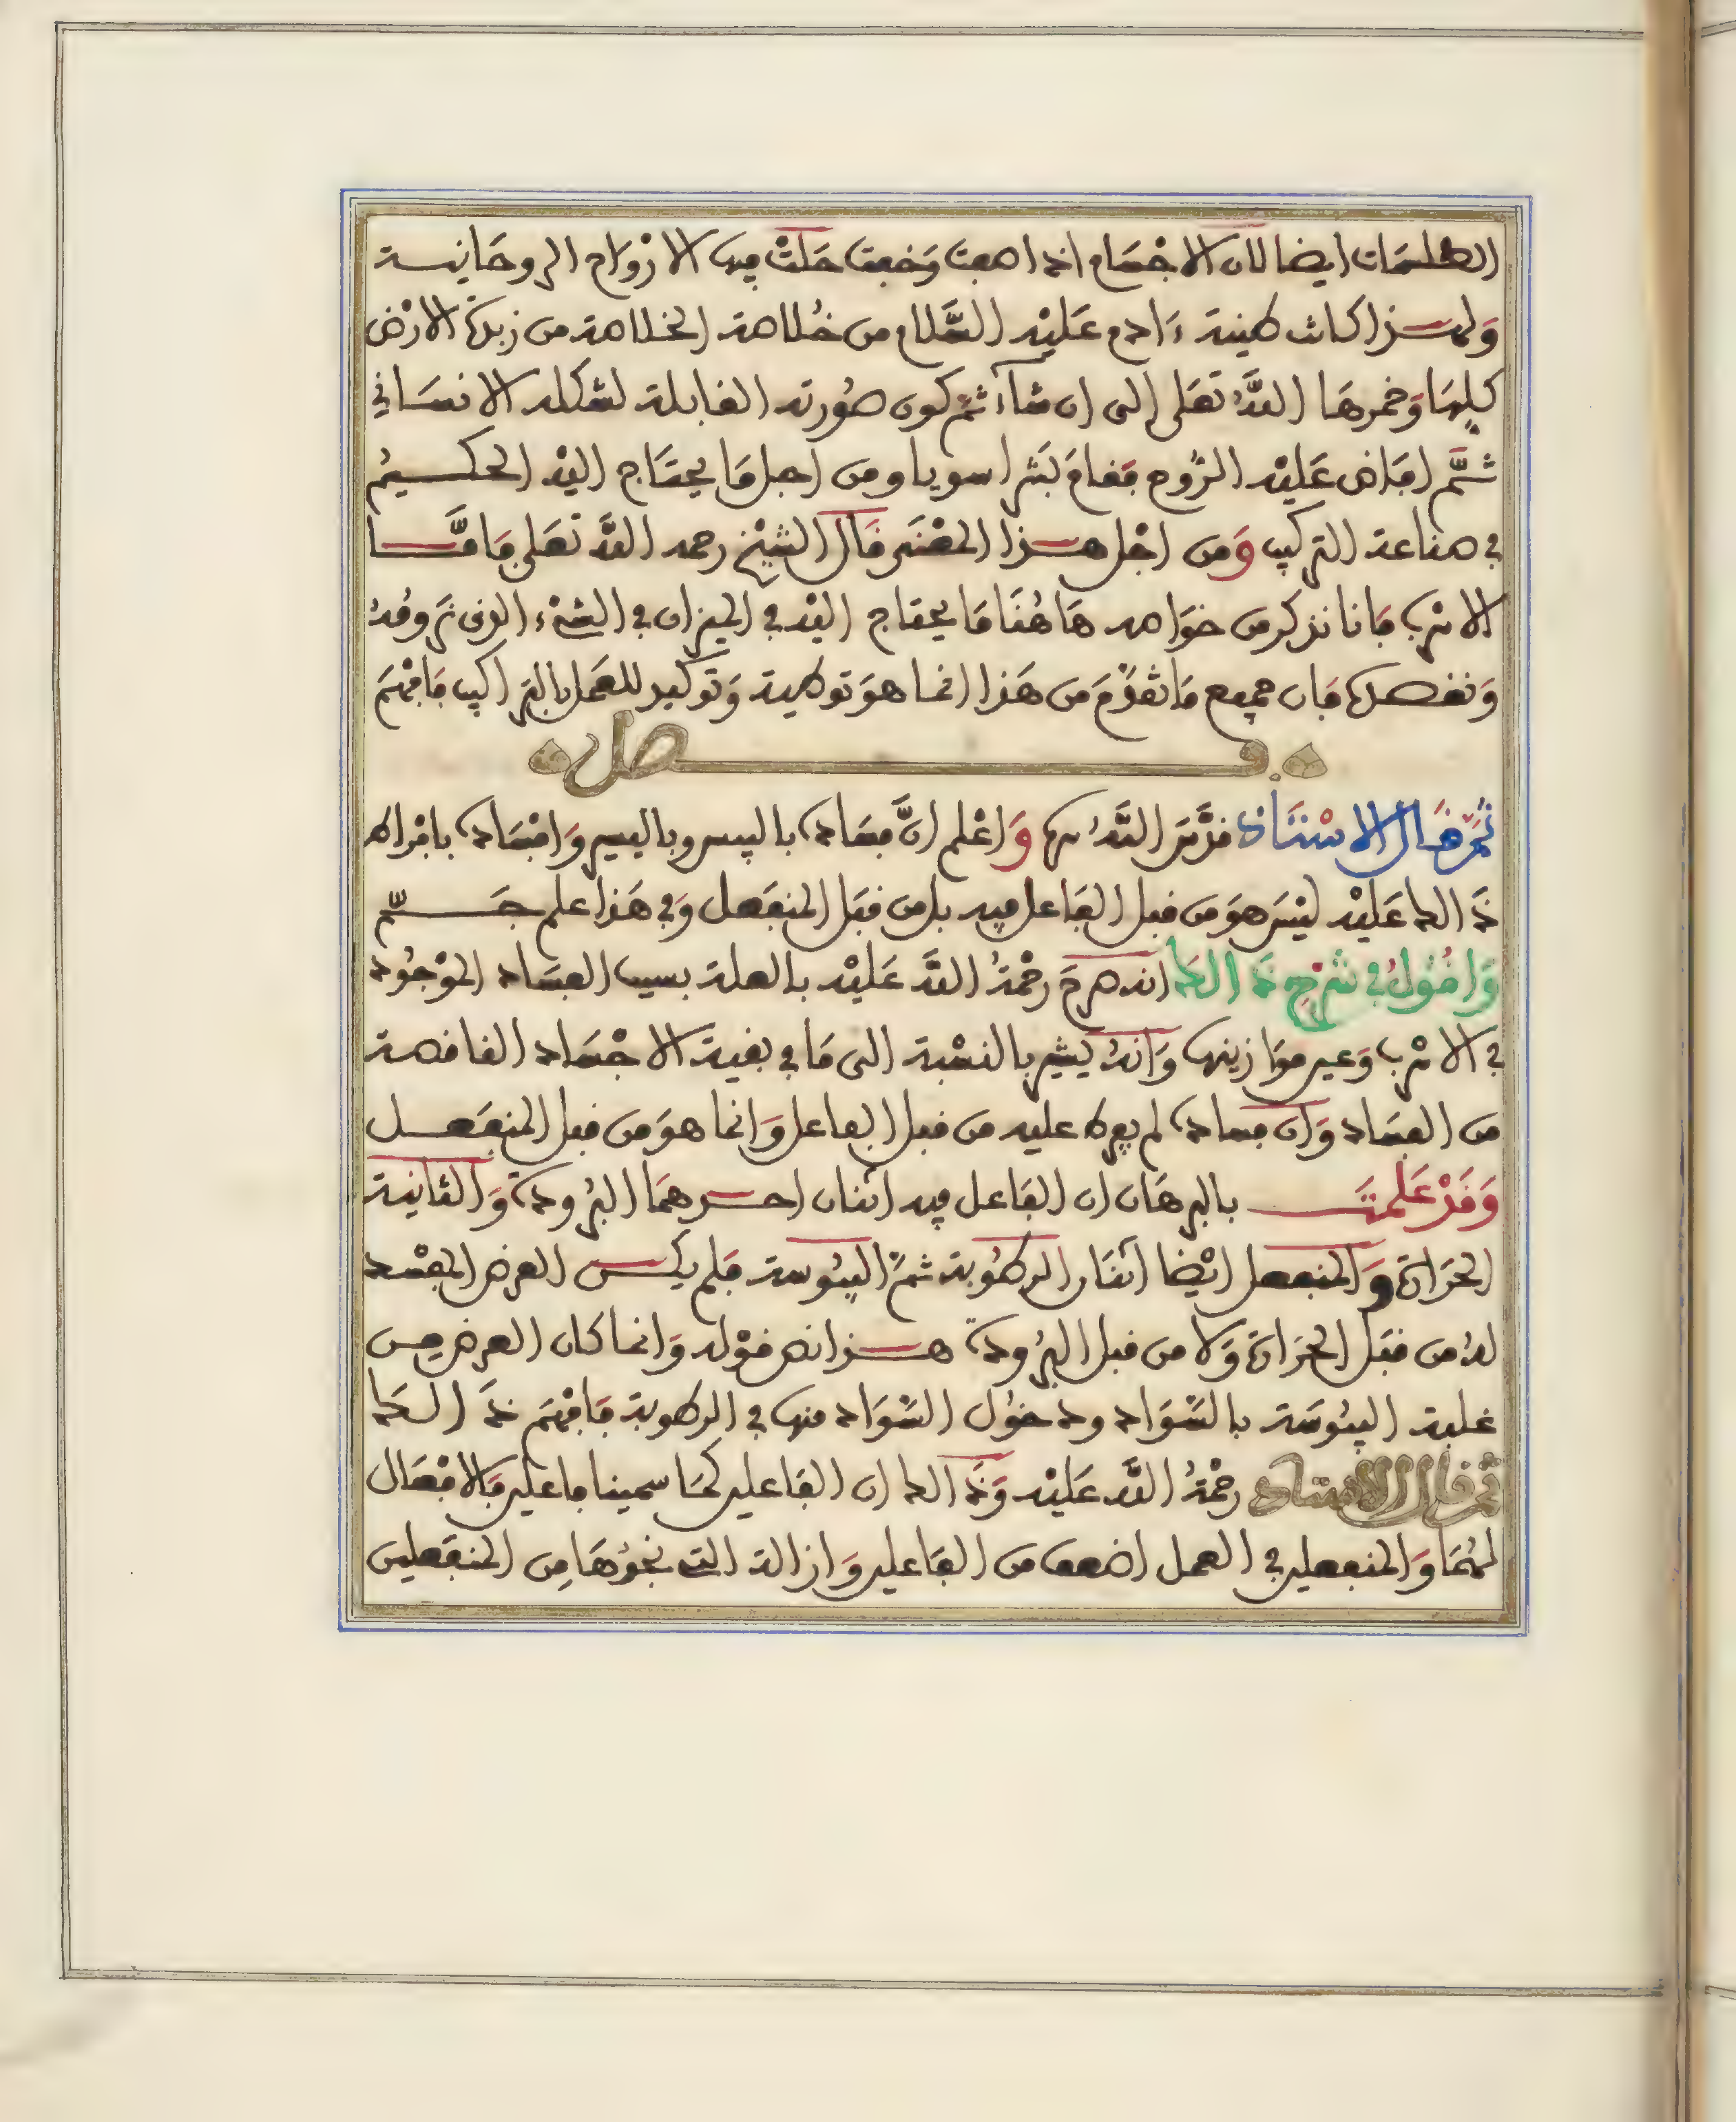 الطلسمات ايضا لان الاجسام اذا صفت وخفت حلت فيها الارواح الروحانية
ولهذا كانت طينة ءادم عليه السلام من خلاصة الخلاصة من زبدة الارض
كلها وخمرها الله تعلى الى ان شاء ثم كون صورته القابلة لشكله الانساني
ثم افاض عليه الروح فقام بشرا سويا ومن اجل ما يحتاج اليه الحكيم
في صناعة التركيب ومن اجل هذا المعنى قال الشيخ رحمه الله تعلى فاما
الاسرب فانا نذكر من خواصه هاهنا ما يحتاج اليه في الميزان في الشيء الذي نرومه
ونفصله فان جميع ما تقدم من هذا انما هو توطية وتوكيد للعمل بالتراكيب فافهم
فصل
ثم قال الاستاذ قدس الله سره واعلم ان فساده باليبس وباليسير وافساده بافراط
ذالك عليه ليس هو من قبل الفاعل فيه بل من قبل المنفعل وفي هذا علم جم
واقول في شرح ذالك انه صرح رحمة الله عليه بالعلة بسبب الفساد الموجود
في الاسرب وعير موازينها وانه يشير بالنسبة الى ما في بقية الاجساد الناقصة
من الفساد وان فساده لم يفرط عليه من قبل الفاعل وانما هو من قبل المنفعل
وقد علمت بالبرهان ان الفاعل فيه اثنان احدهما البرودة والثانية
الحرارة والمنفعل ايضا اثنان الرطوبة ثم اليبوسة فلم يكن العرض المفسد
له من قبل الحرارة ولا من قبل البرودة هذا نص قوله وانما كان العرض من
غلبة اليبوسة بالسواد ودخول السواد منها في الرطوبة فافهم ذالك
ثم قال الاستاذ رحمة الله عليه وذالك ان الفاعلين كما سمينا فاعلين فالافعال
لهما والمنفعلين في العمل اضعف من الفاعلين وازالة التي نحوها من المنفعلين